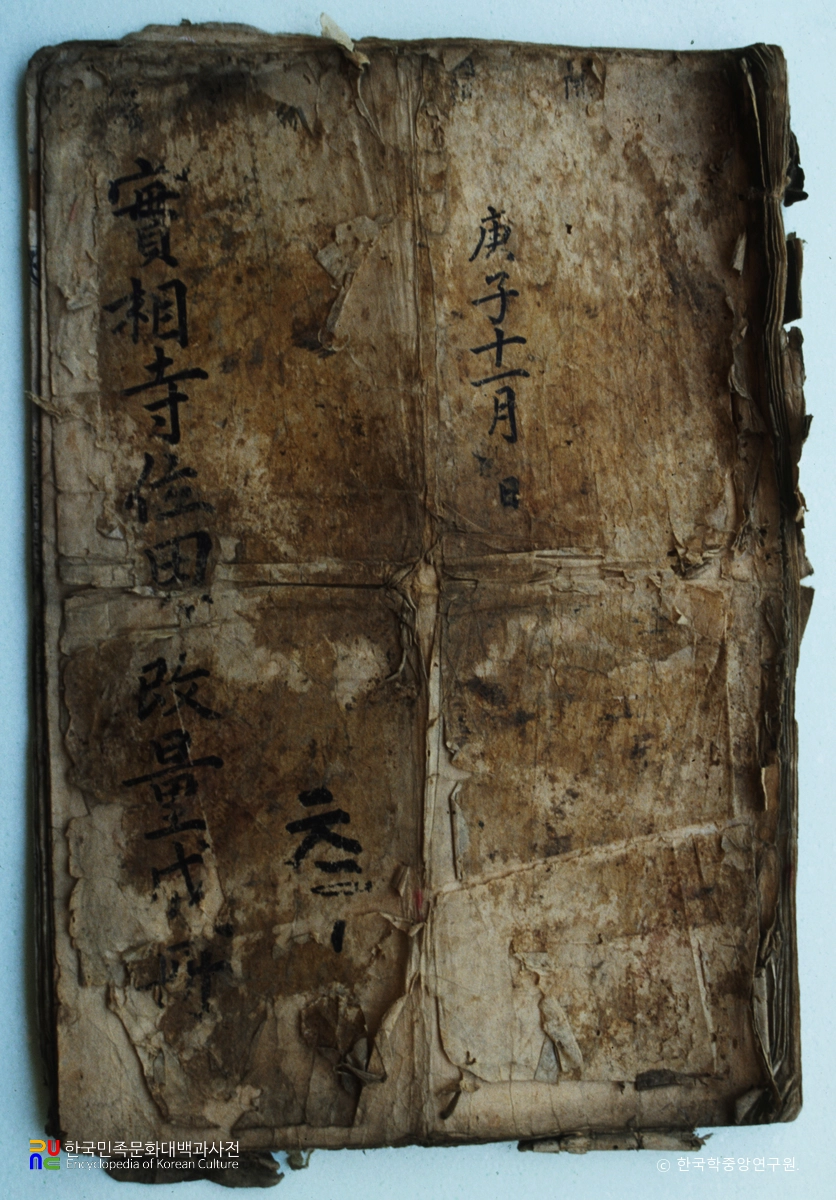 庚子十一月 日
實相寺位田 改量成冊
한국민족문화대백과사전
Encyclopedia of Korean Culture
© 한국학중앙연구원